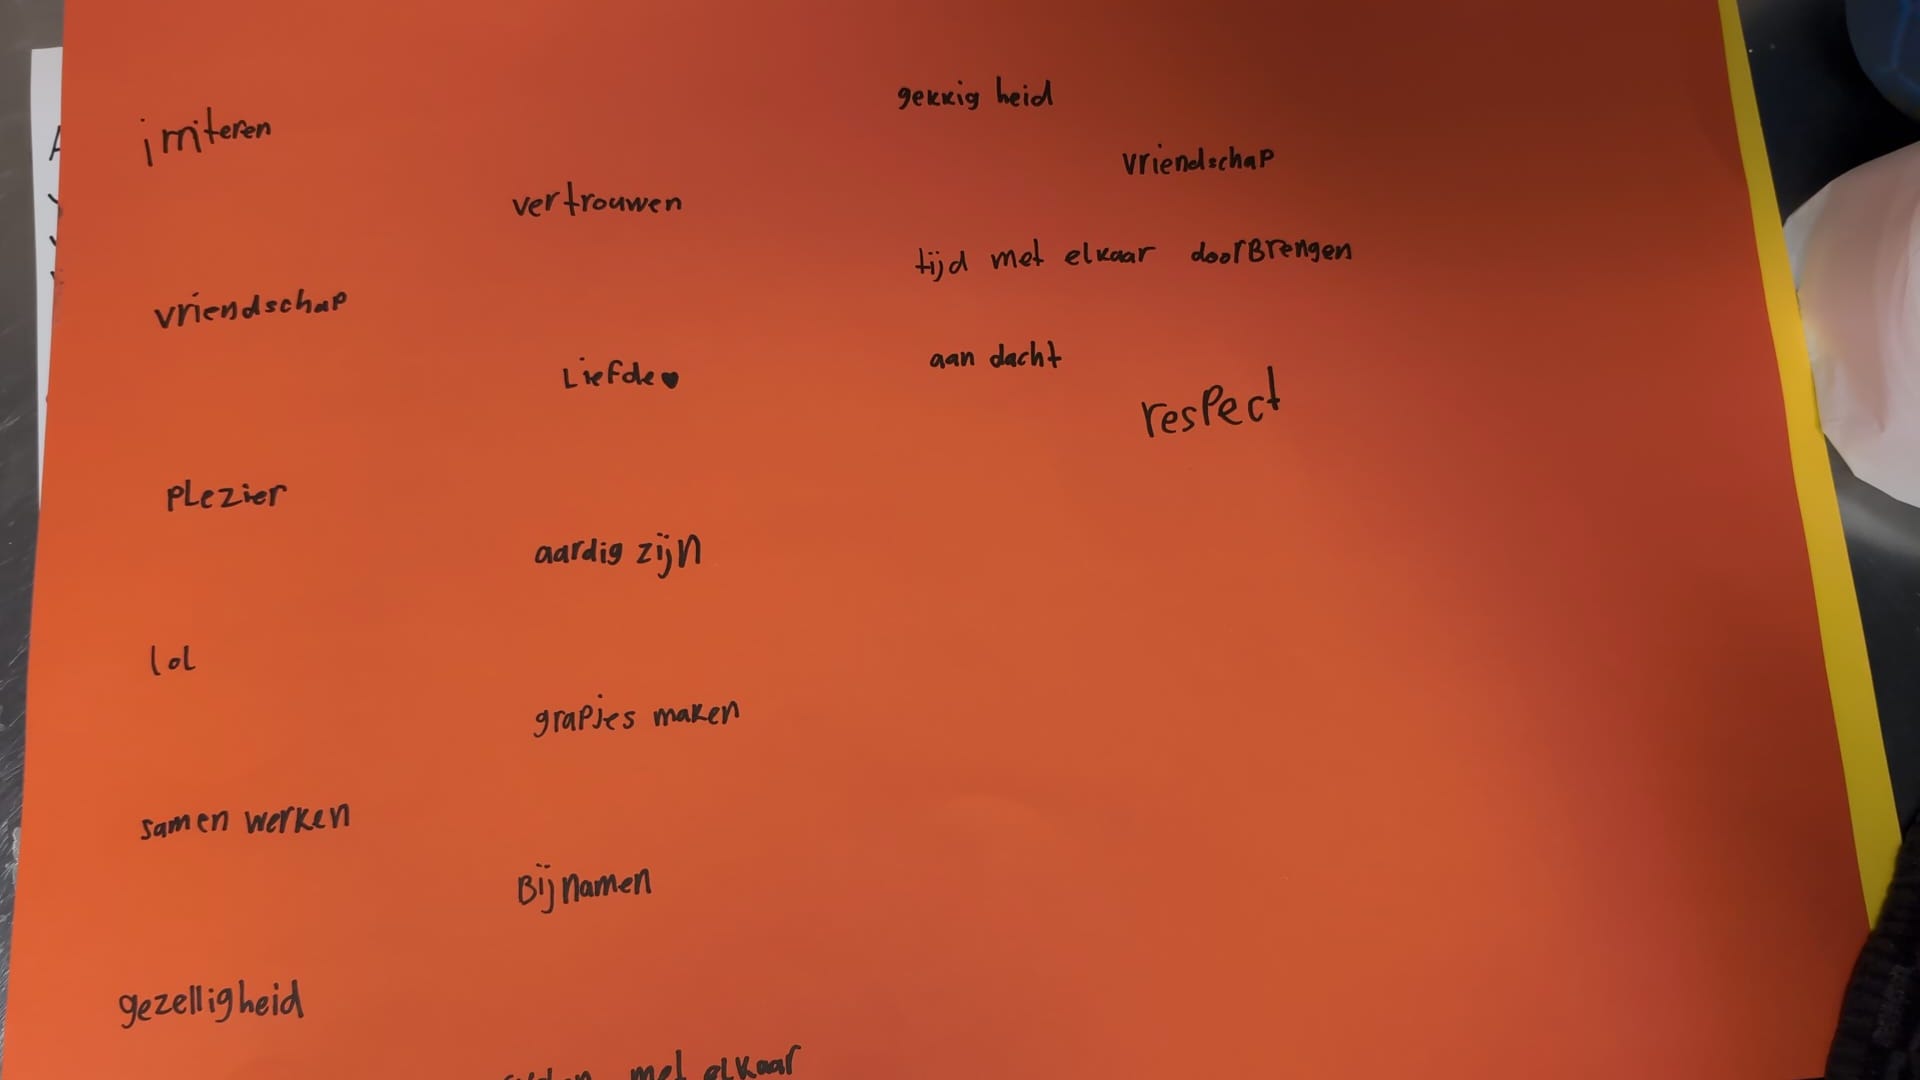 imiteren
vriendschap
PLezier
lol
samen werken
gezelligheid
vertrouwen
Liefde♥
aardig zijn
grapjes maken
Bijnamen
met elkaar
gekkig heid
vriendschap
tijd met elkaar doorBrengen
aan dacht
respect